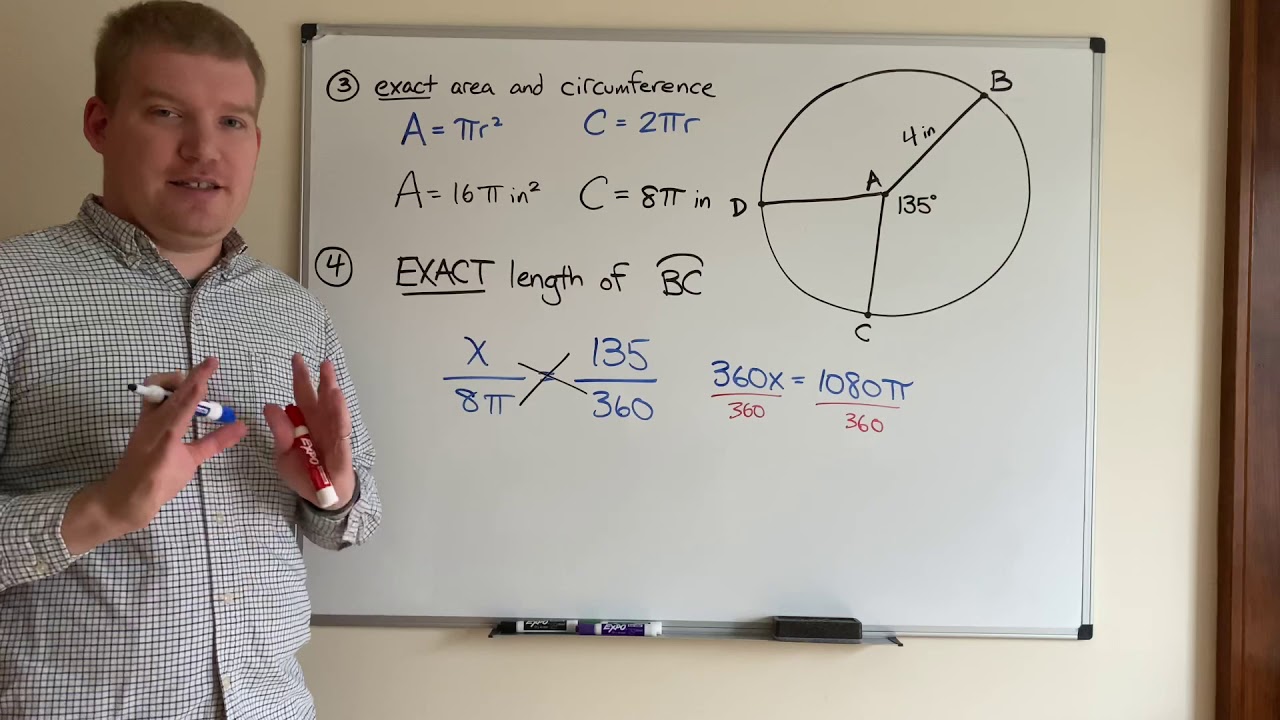 ③ exact area and circumference
A = πr² C = 2πr
A = 16π in² C = 8π in
④ EXACT length of B͡C
x/8π = 135/360
360x/360 = 1080π/360
B
4 in
A
D
135°
C
EXPO
EXPO
EXPO